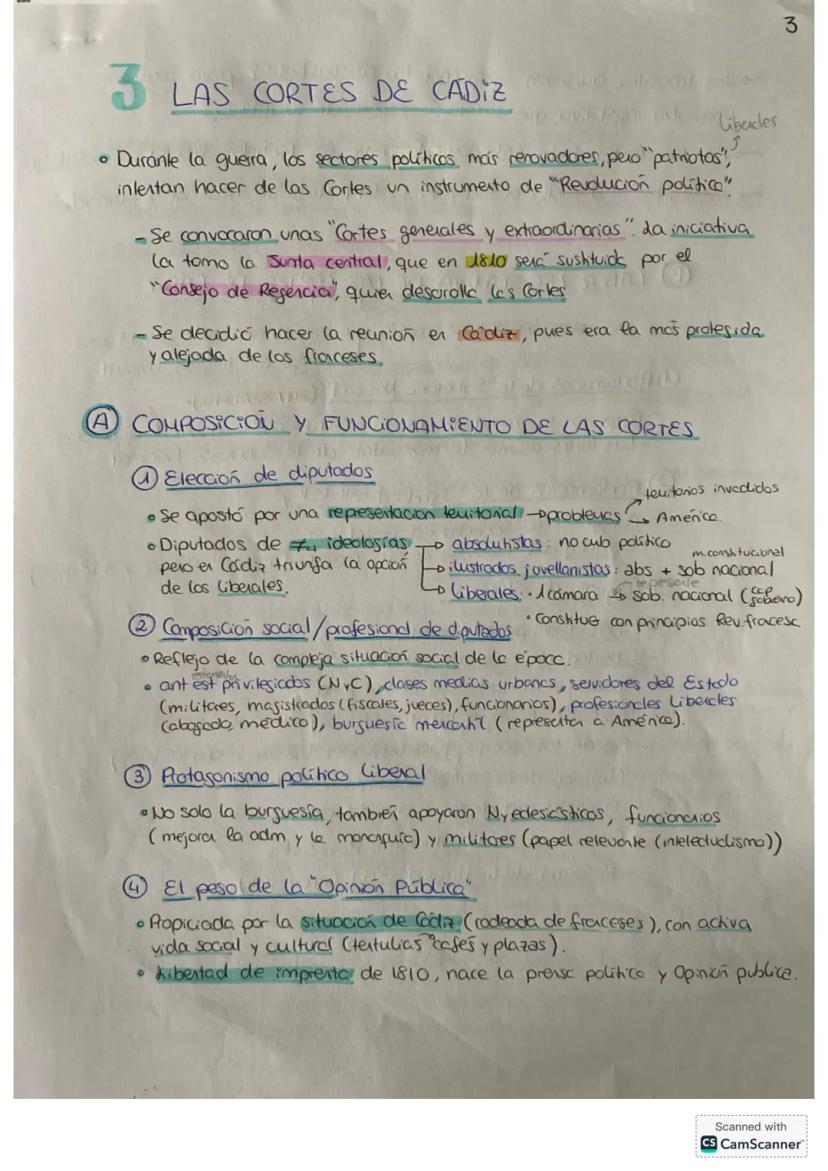 3
3 LAS CORTES DE CÁDIZ
liberales
• Durante la guerra, los sectores políticos más renovadores, pero "patriotas",
intentan hacer de las Cortes un instrumento de "Revolución política".
- Se convocaron unas "Cortes generales y extraordinarias". La iniciativa
la tomo la Junta central, que en 1810 será sustituida por el
"Consejo de Regencia", quien desarolla las Cortes
- Se decidió hacer la reunión en Cádiz, pues era la más protegida
y alejada de los franceses.
A COMPOSICIÓN Y FUNCIONAMIENTO DE LAS CORTES
1 Elección de diputados
territorios invadidos
• Se apostó por una representacion territorial → problemas → América
• Diputados de ≠s ideologías → absolutistas: no cub político
m.constitucional
pero en Cádiz triunfa la opción → ilustrados, jovellanistas: abs + sob nacional
represente
de los liberales. → liberales: · 1 cámara → sob. nacional (gobierno)
· Constitue con principios Rev. francesa
2 Composición social/profesional de diputados
• Reflejo de la compleja situación social de la época.
• ant est privilegiados (N y C), clases medias urbanas, servidores del Estado
(militares, magistrados (fiscales, jueces), funcionarios), profesionales liberales
(abogado, médico), burguesía mercantil (representa a América).
3 Protagonismo político liberal
• No solo la burguesía, también apoyaron N y eclesiásticos, funcionarios
(mejorar la adm y la monarquía) y militares (papel relevante (intelectualismo))
4 El peso de la "Opinión Pública"
• Propiciada por la situación de Cádiz (rodeada de franceses), con activa
vida social y cultural (tertulias cafés y plazas).
• Libertad de imprenta de 1810, nace la prensa política y Opinión publica.
Scanned with
CS CamScanner